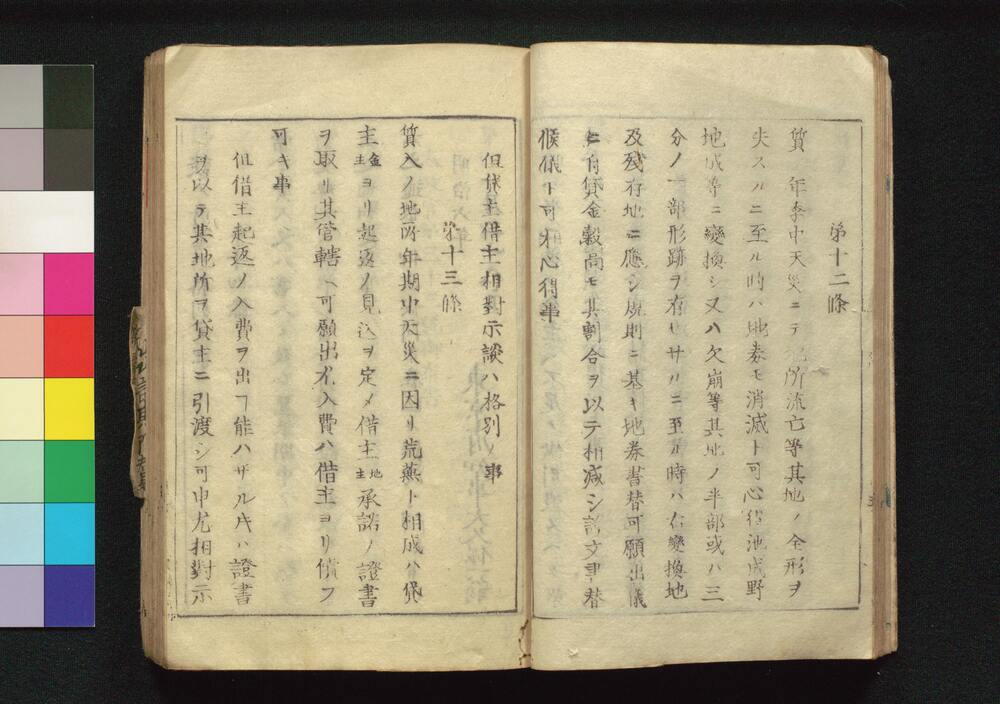 第十二條
質 年季中天災ニテ地所流亡等其地ノ全形ヲ
失スルニ至ル時ハ地券モ消滅ト可心得池成野
地成等ニ變換シ又ハ欠崩等其地ノ半部或ハ三
分ノ一部形跡ヲ存セサルニ至ル時ハ右變換地
及殘存地ニ應シ規則ニ基キ地券書替可願出儀
ニ有貸金穀高モ其割合ヲ以テ相減シ証文書替
候儀ト可相心得事
但貸主借主相對示談ハ格別ノ事
第十三條
質入ノ地所年期中天災ニ因リ荒蕪ト相成ハ貸
主金主ヨリ起返ノ見込ヲ定メ借主地主承諾ノ證書
ヲ取リ其管轄ヘ可願出尤入費ハ借主ヨリ償フ
可キ事
但借主起返ノ入費ヲ出ス能ハザル片ハ證書
ヲ以テ其地所ヲ貸主ニ引渡シ可申尤相對示